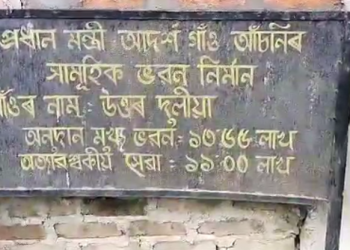 প্ৰধান মন্ত্ৰী আদৰ্শ গাঁও আঁচনিৰ
সামূহিক ভৱন নিৰ্মান
গাঁওৰ নাম : উত্তৰ দুলীয়া
অনদান মুখ্য ভৱন : ১৩.৬৬ লাখ
অত্যাৱশ্বকীয় সেৱা : ১১.০০ লাখ